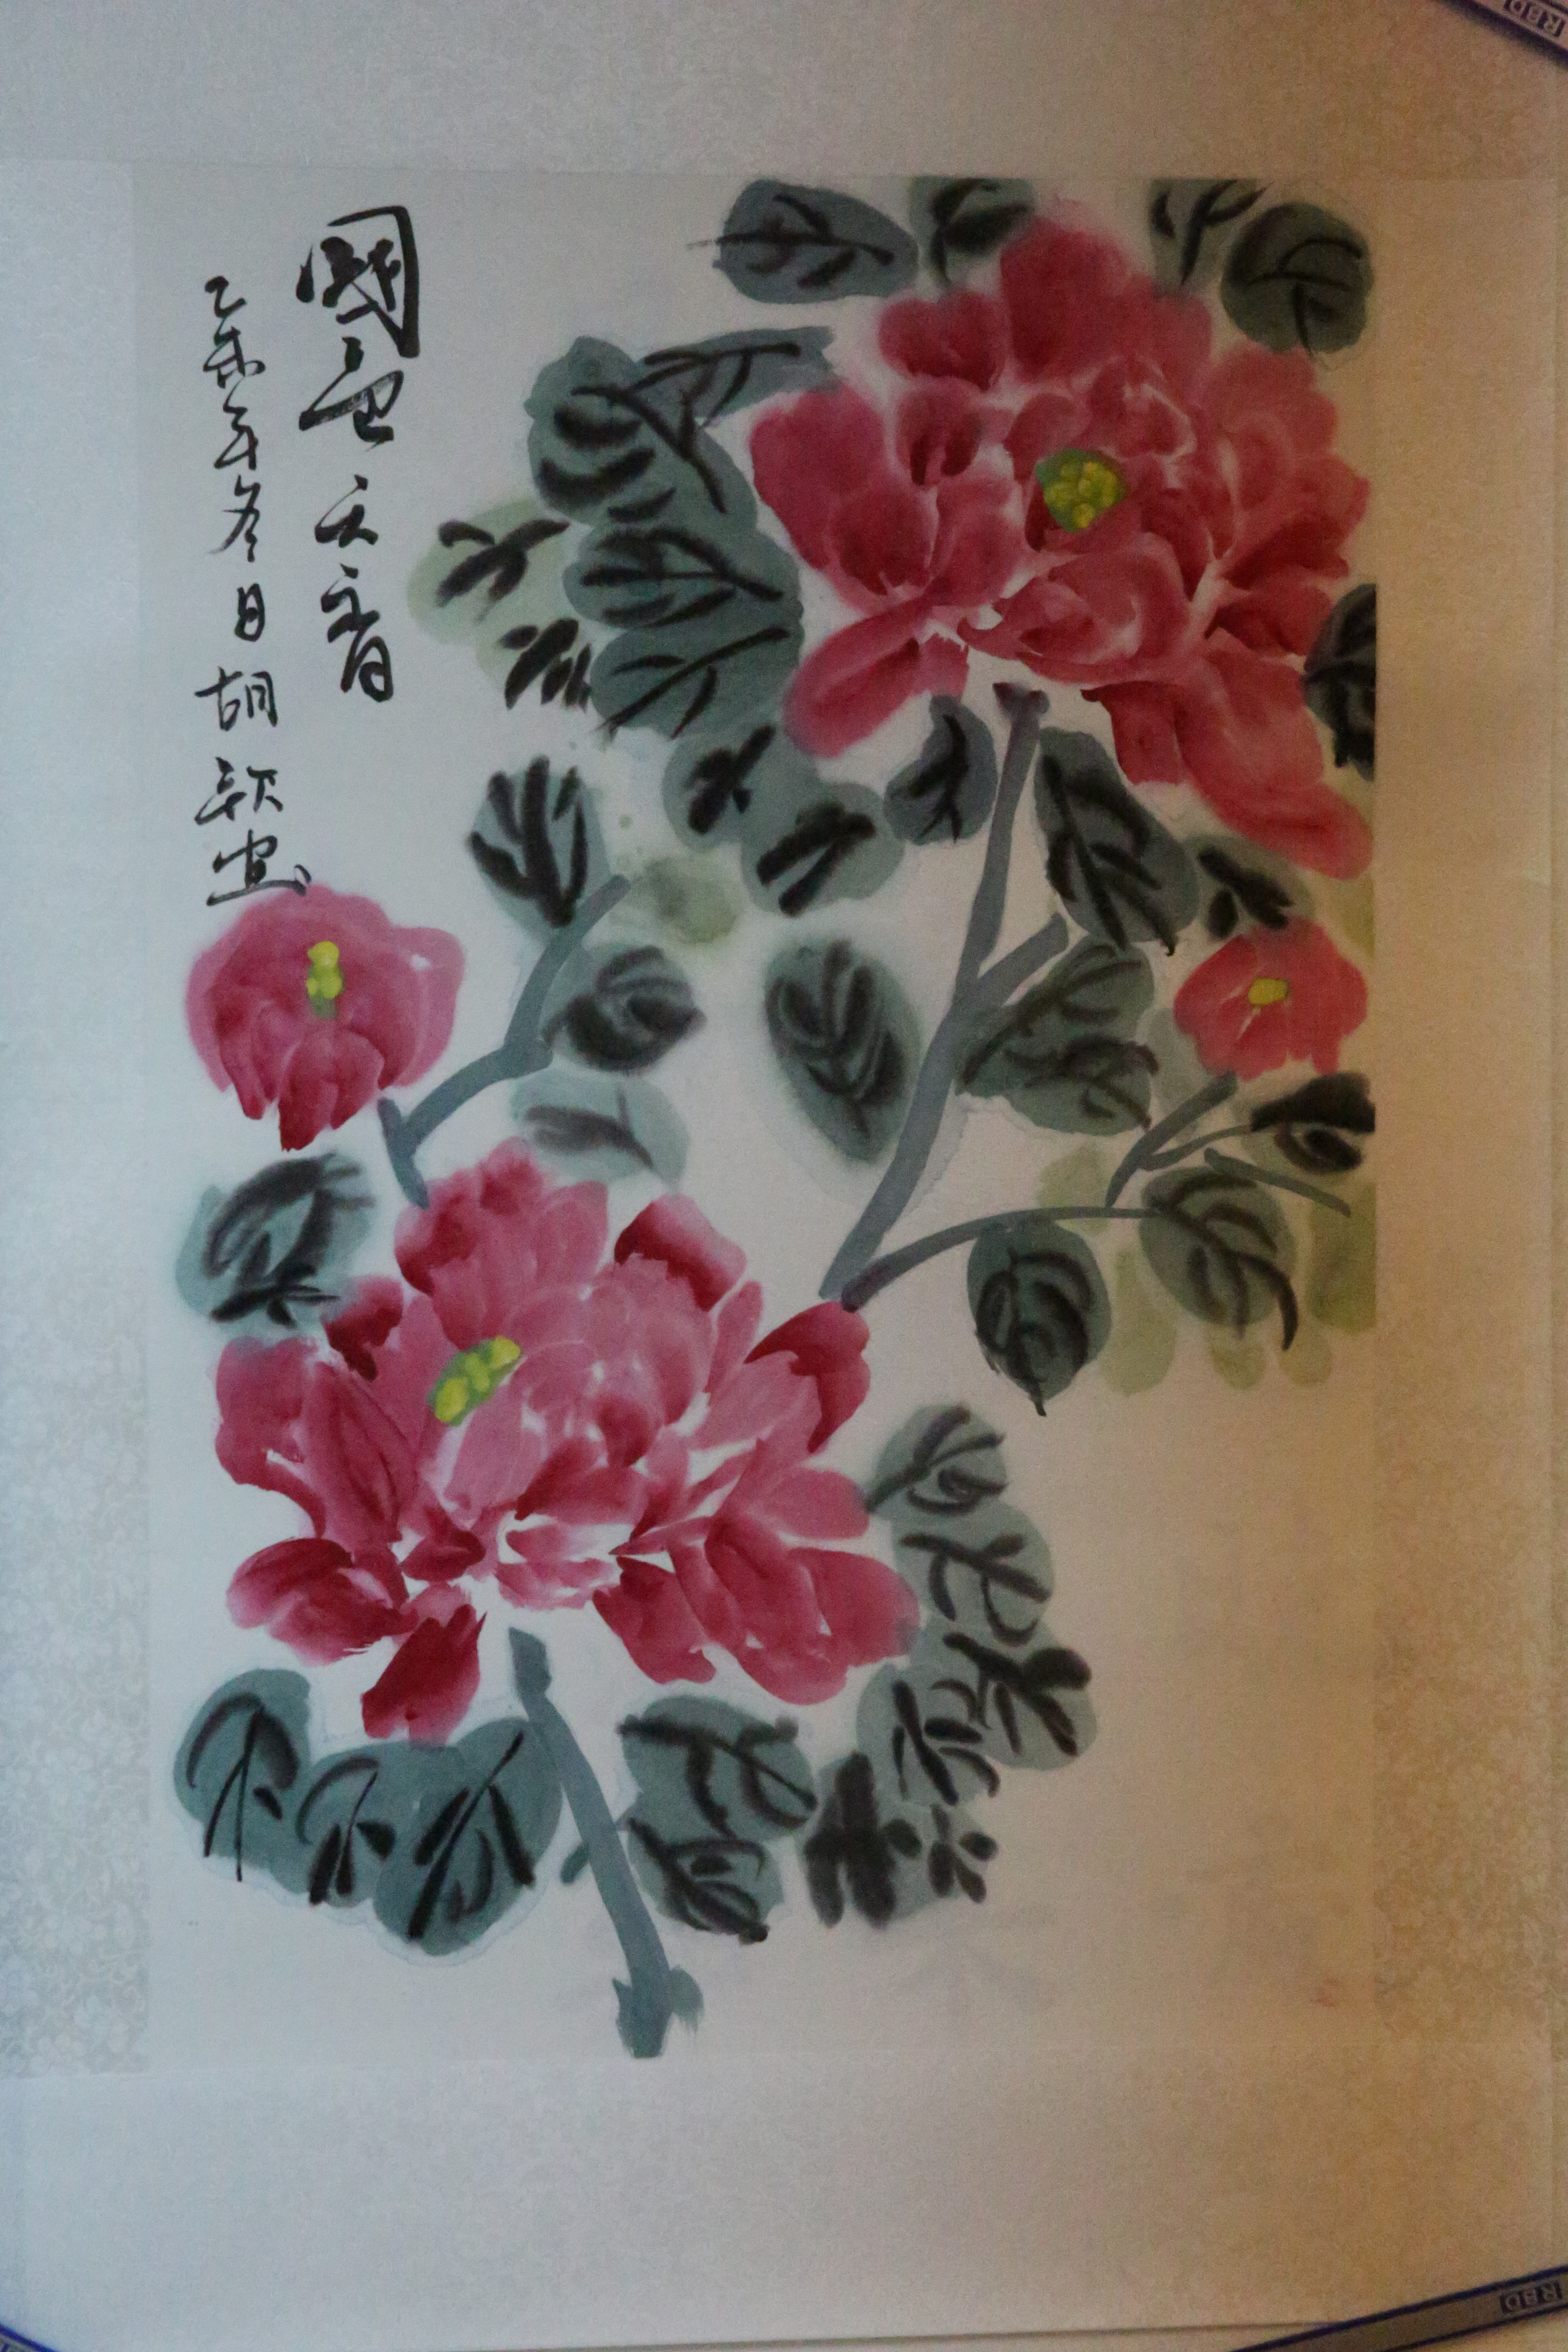 國色天香
乙未年冬日胡歌画
RBD
RBD